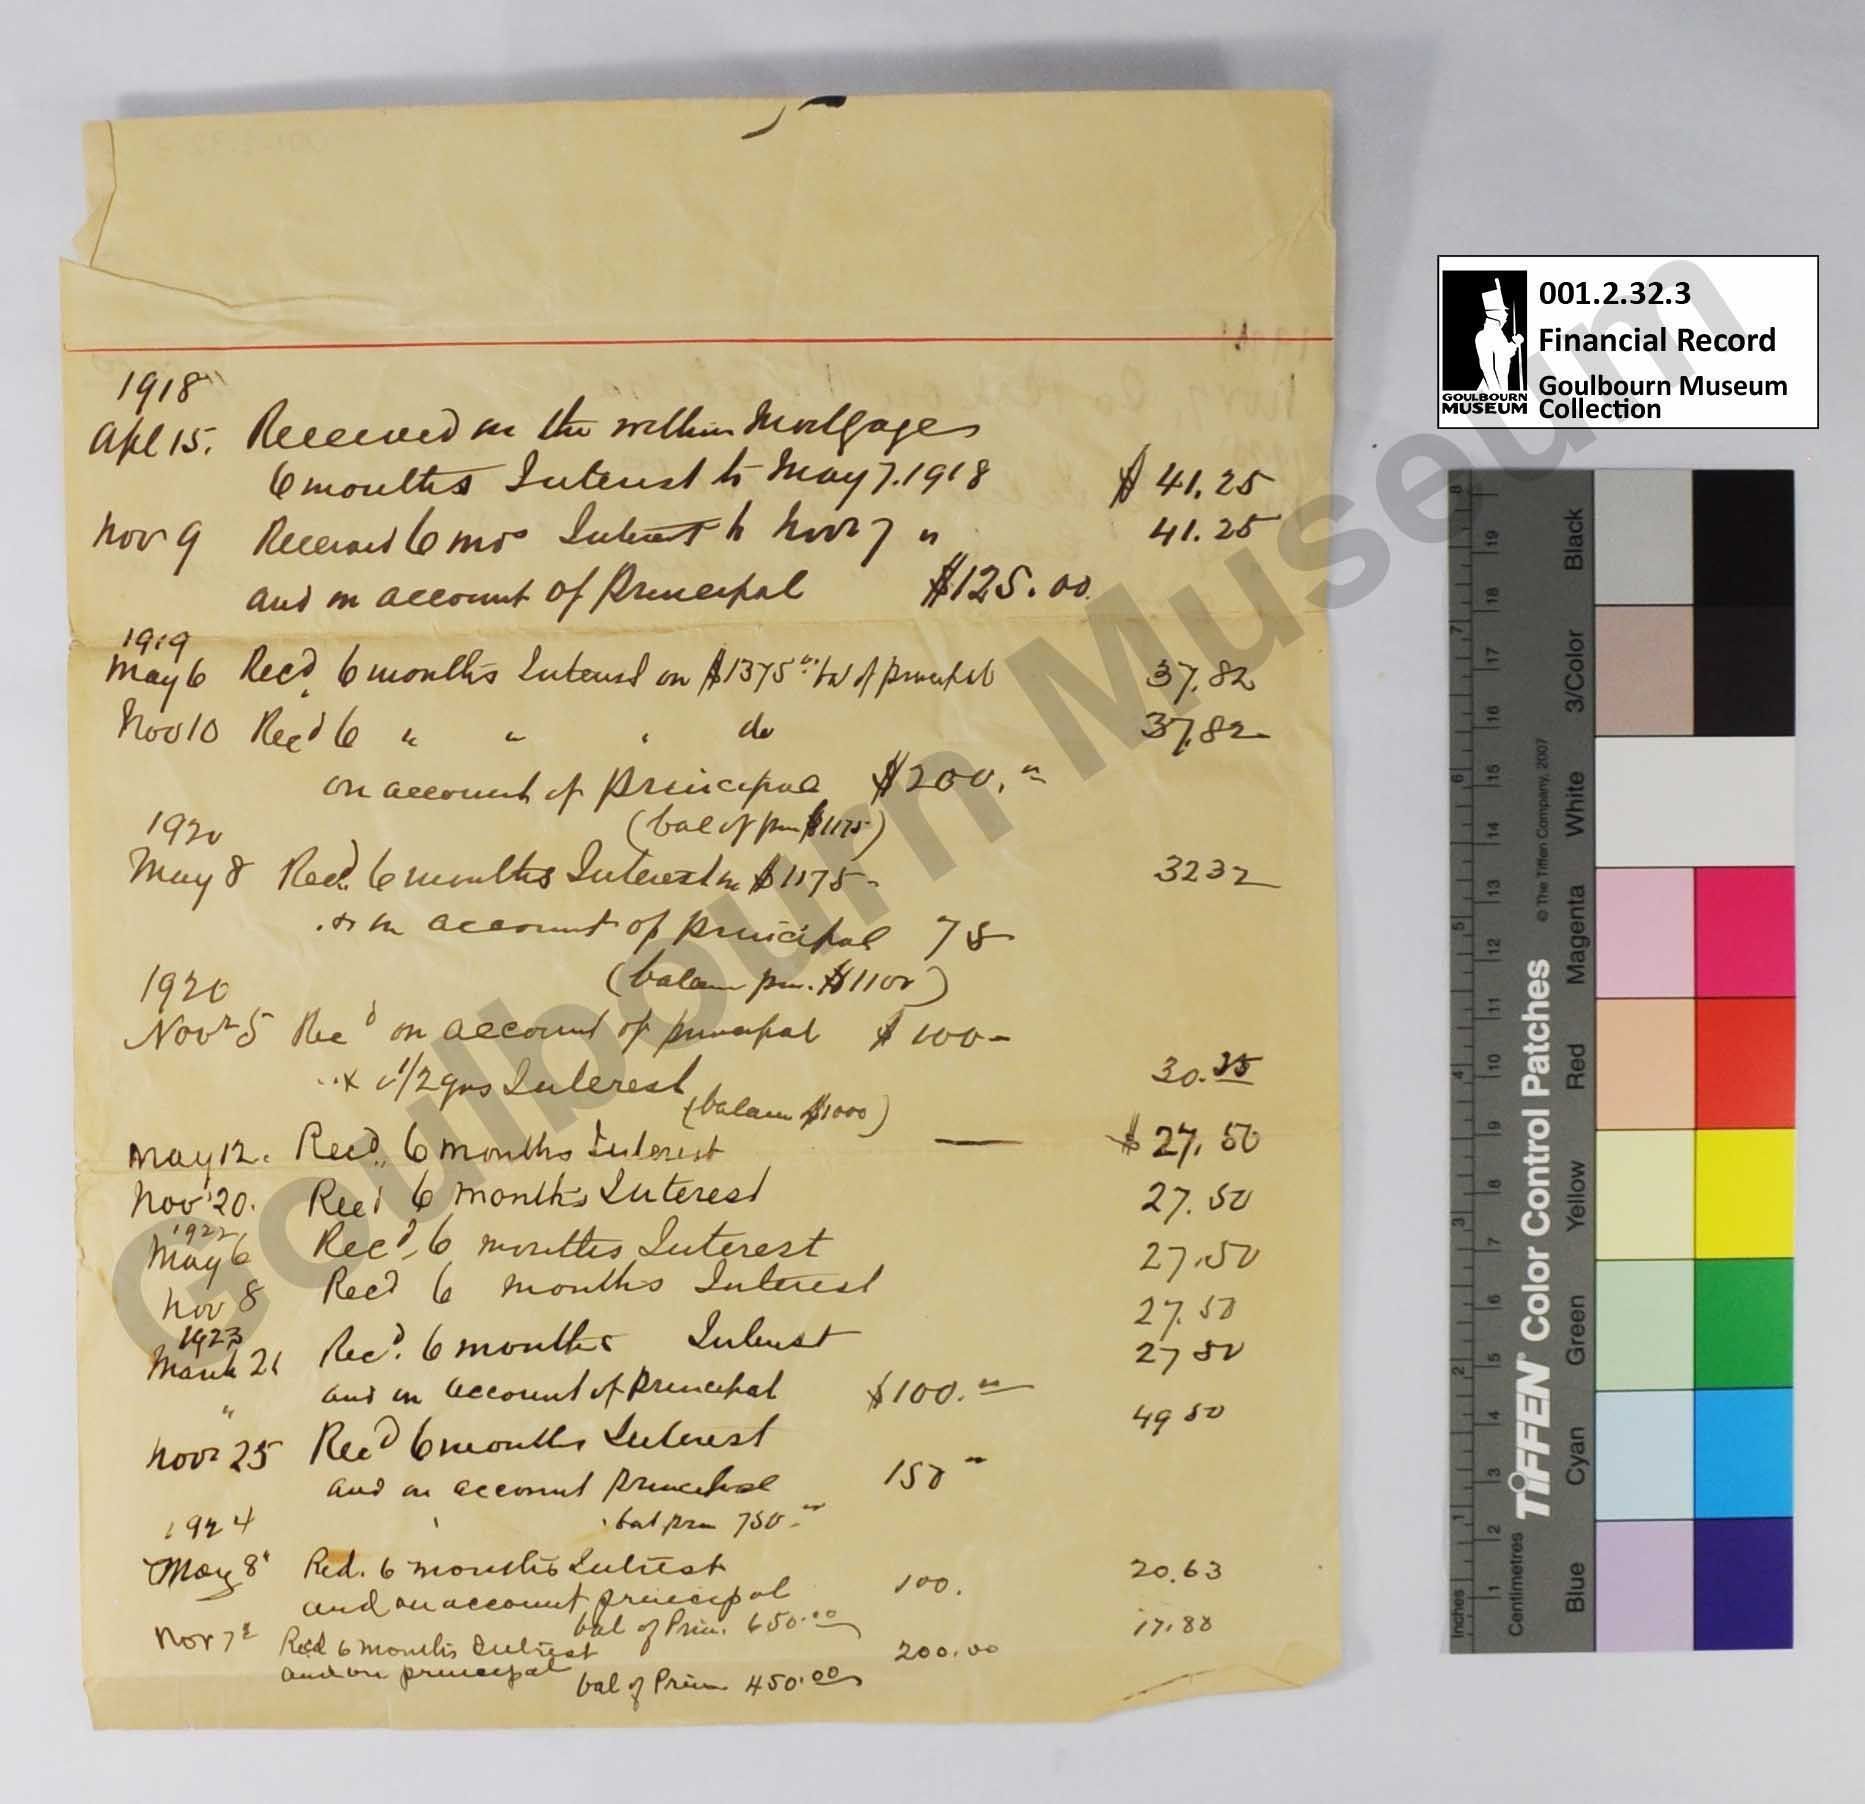 1918
Apl 15. Received on the within Mortgage
6 months Interest to May 7. 1918 $ 41.25
Nov 9 Received 6 mos Interest to Novr 7 " 41.25
and on account of Principal $125.00
1919
May 6 Rec'd 6 months Interest on $1375 bal of principal 37.82
Nov 10 Rec'd 6 " " " do 37.82
on account of Principal $200.
(bal of prin $1175)
1920
May 8 Recd. 6 months Interest on $1175 - 3232
& on account of principal 75
(balance prin. $1100)
1920
Novr 5 Rec'd on account of principal $ 100 -
& 1/2 yrs Interest 30.25
(balance $1000)
May 12. Rec'd 6 months Interest — $ 27.50
Nov 20. Rec'd 6 months Interest 27.50
1922
May 6 Rec'd 6 months Interest 27.50
Nov 8 Rec'd 6 months Interest 27.50
1923
March 21 Rec'd. 6 months Interest 27 50
" and on account of Principal $100.
Novr 25 Rec'd 6 months Interest 49 50
and on account principal 150
bal prin 750
1924
May 8 Red. 6 months Intrest 20.63
and on account principal 100.
bal of Prin. 650.00
Nov 7 Recd 6 months Intrest 17.88
and on principal 200.00
bal of Prin 450.00
001.2.32.3
Financial Record
Goulbourn Museum
Collection
GOULBOURN
MUSEUM
Goulbourn Museum
TIFFEN Color Control Patches
© The Tiffen Company, 2007
Centimetres
Inches
Blue Cyan Green Yellow Red Magenta White 3/Color Black
1 2 3 4 5 6 7 8 9 10 11 12 13 14 15 16 17 18 19
1 2 3 4 5 6 7 8